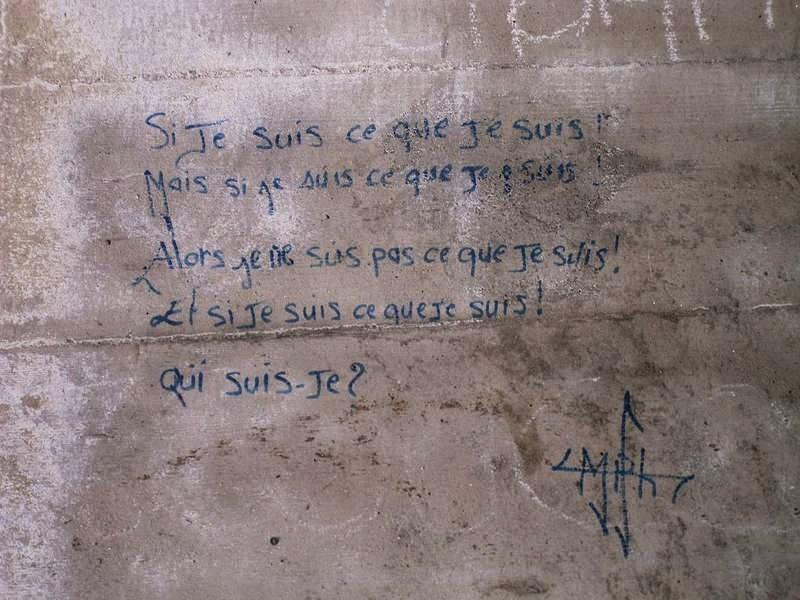 Si Je suis ce que Je suis!
Mais si je suis ce que Je suis!
Alors je ne suis pas ce que Je suis!
Et si Je suis ce que Je suis!
Qui suis-Je?